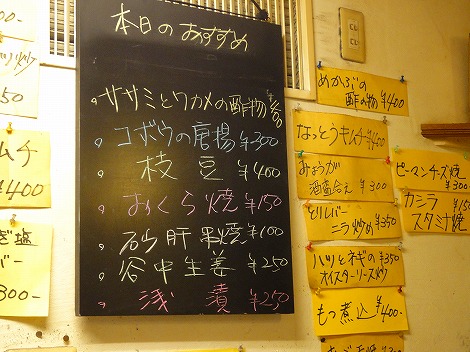 00-
リ炒
50
ムチ
¥400
ぎ塩
バー
300-
本日のおすすめ
ササミとワカメの酢物
ゴボウの唐揚 ¥300
枝豆 ¥400
おくら焼 ¥150
砂肝串焼 ¥100
谷中生姜 ¥250
浅漬 ¥250
めかぶの
酢の物 ¥400
なっとうキムチ ¥400
みょうが
酒盗合え ¥300
とりレバー
ニラ炒め ¥350
ハツとネギの ¥350
オイスターソース炒
もつ煮込 ¥400-
ピーマンチーズ焼
¥300
カニラ ¥150
スタミナ焼